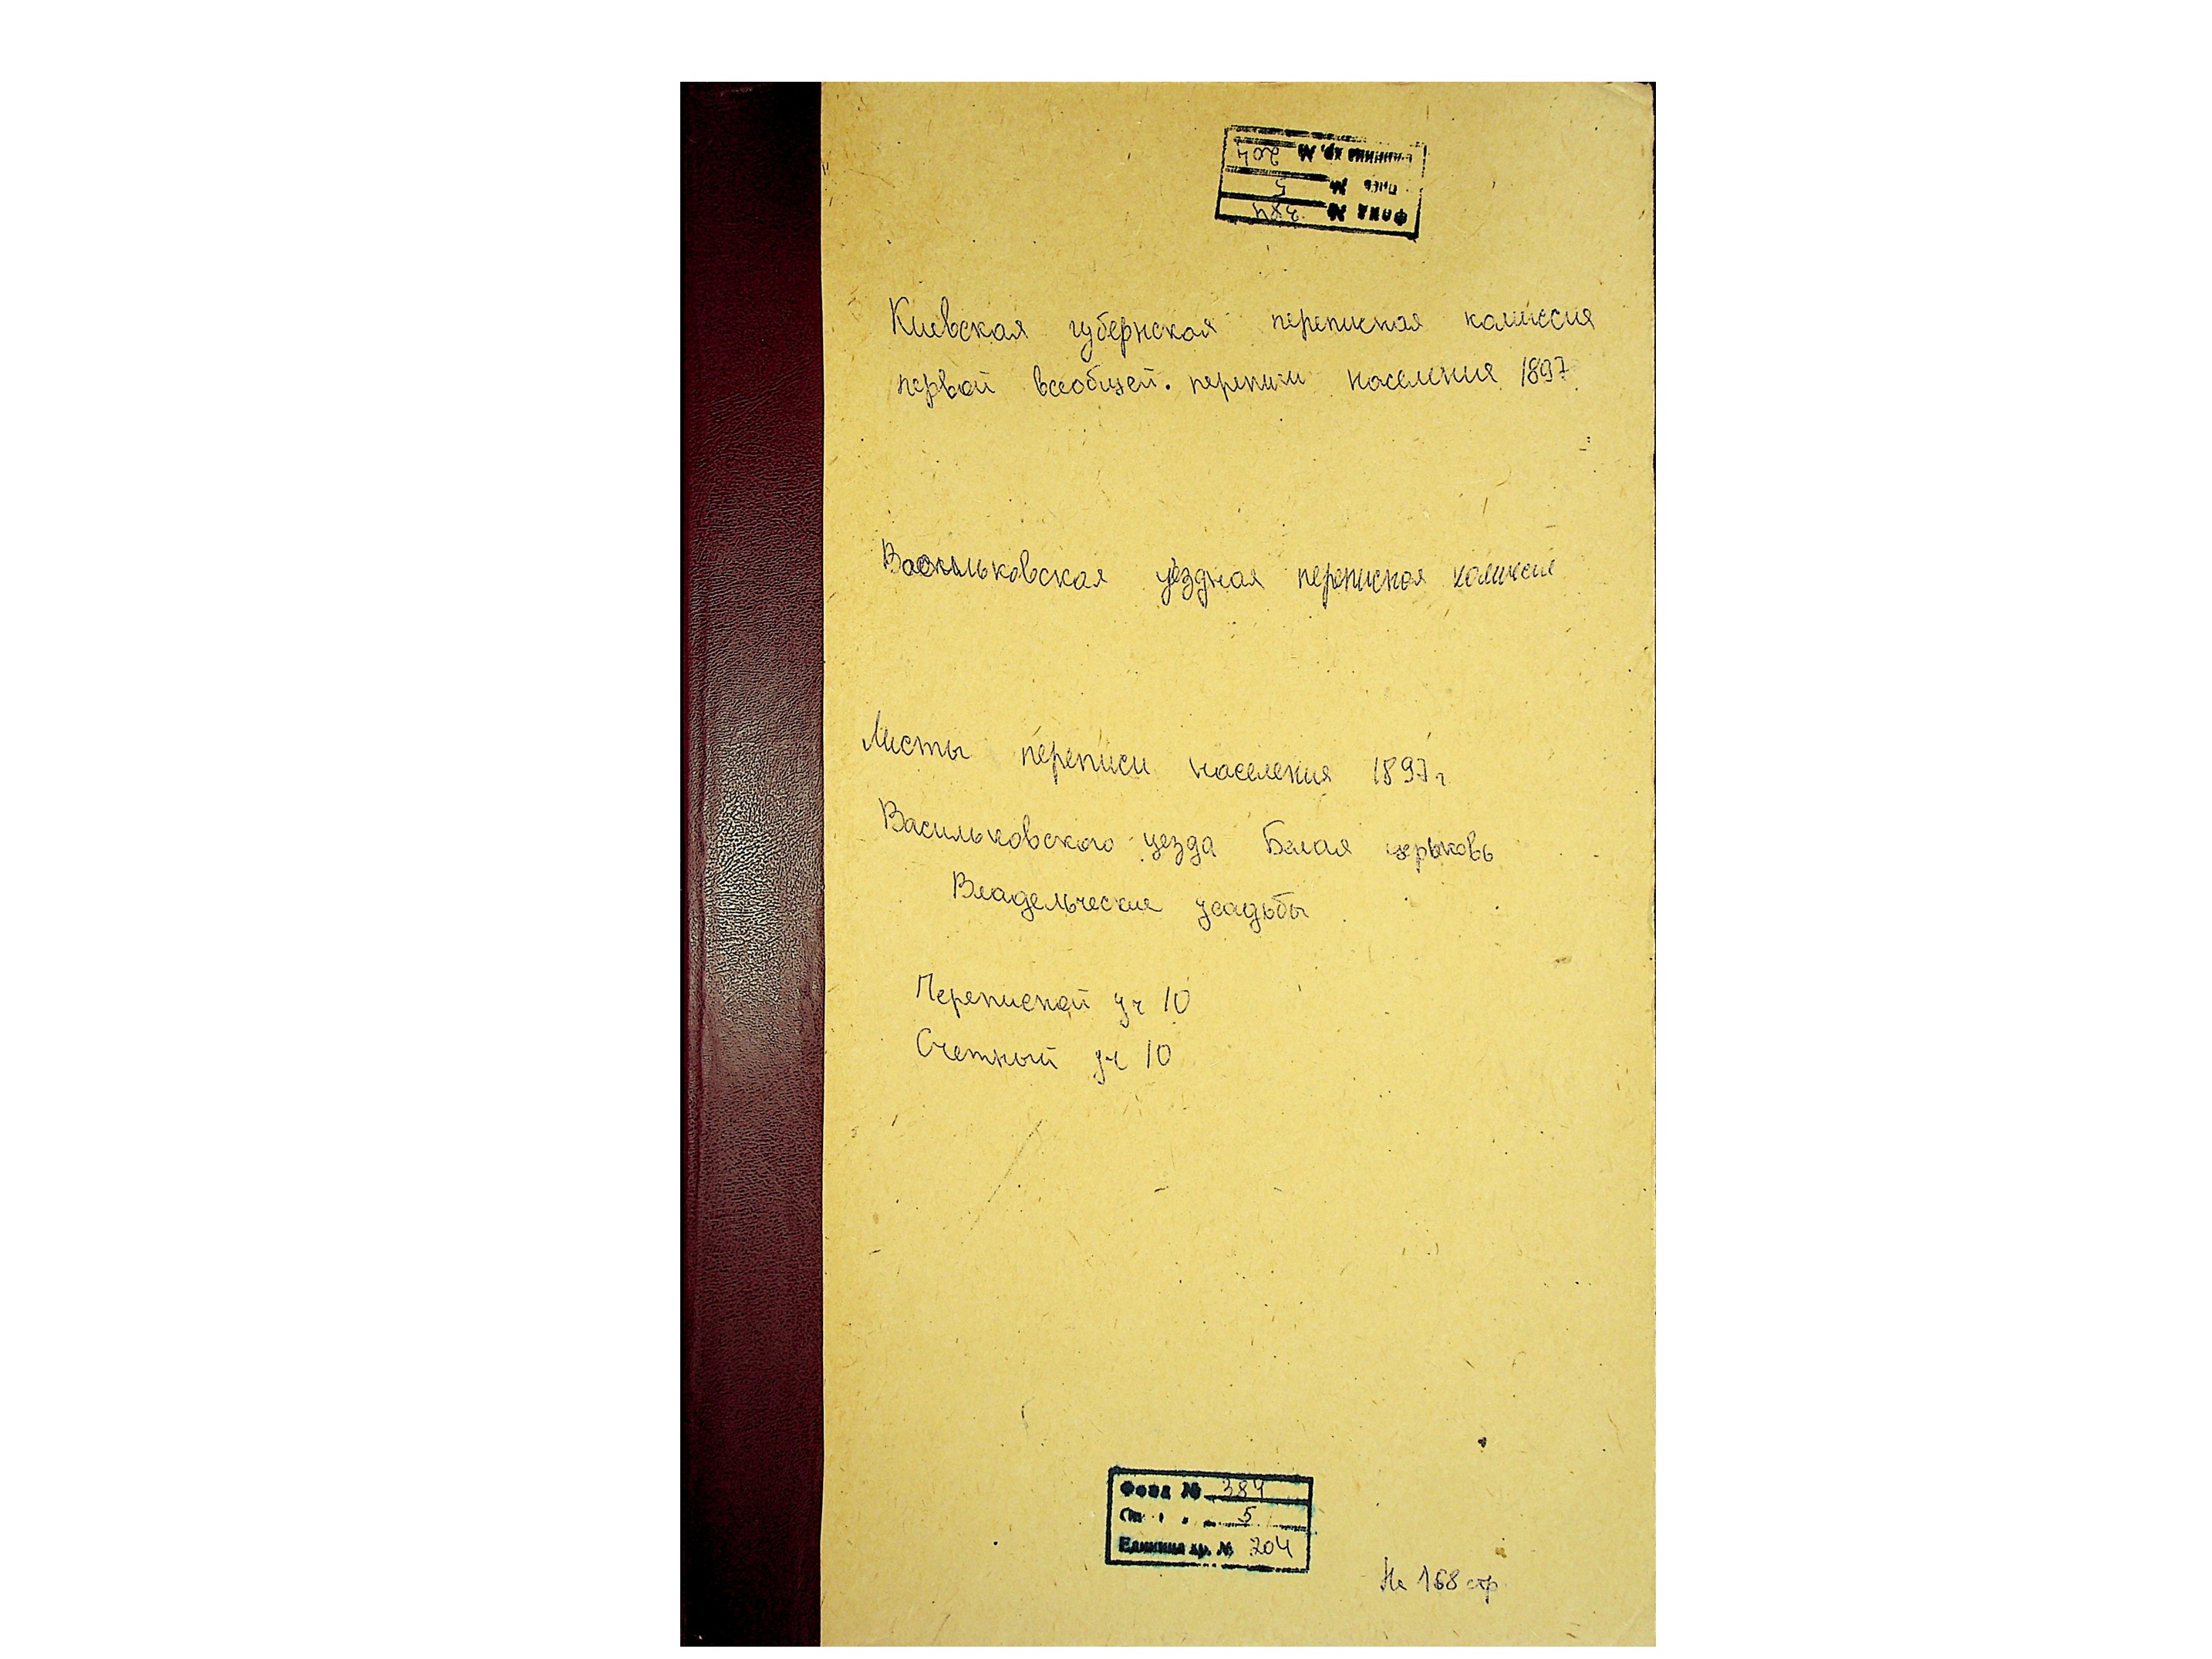 Единица хр. № 204
Опись № 5
Фонд № 384
Киевская губернская переписная комиссия
первой всеобщей переписи населения 1897
Васильковская уездная переписная комиссия
Листы переписи населения 1897 г
Васильковского уезда Белая церьковь
Владельческие усадьбы
Переписной уч 10
Счетный уч 10
Фонд № 384
Оп. 5
Единица хр. № 204
На 168 стр